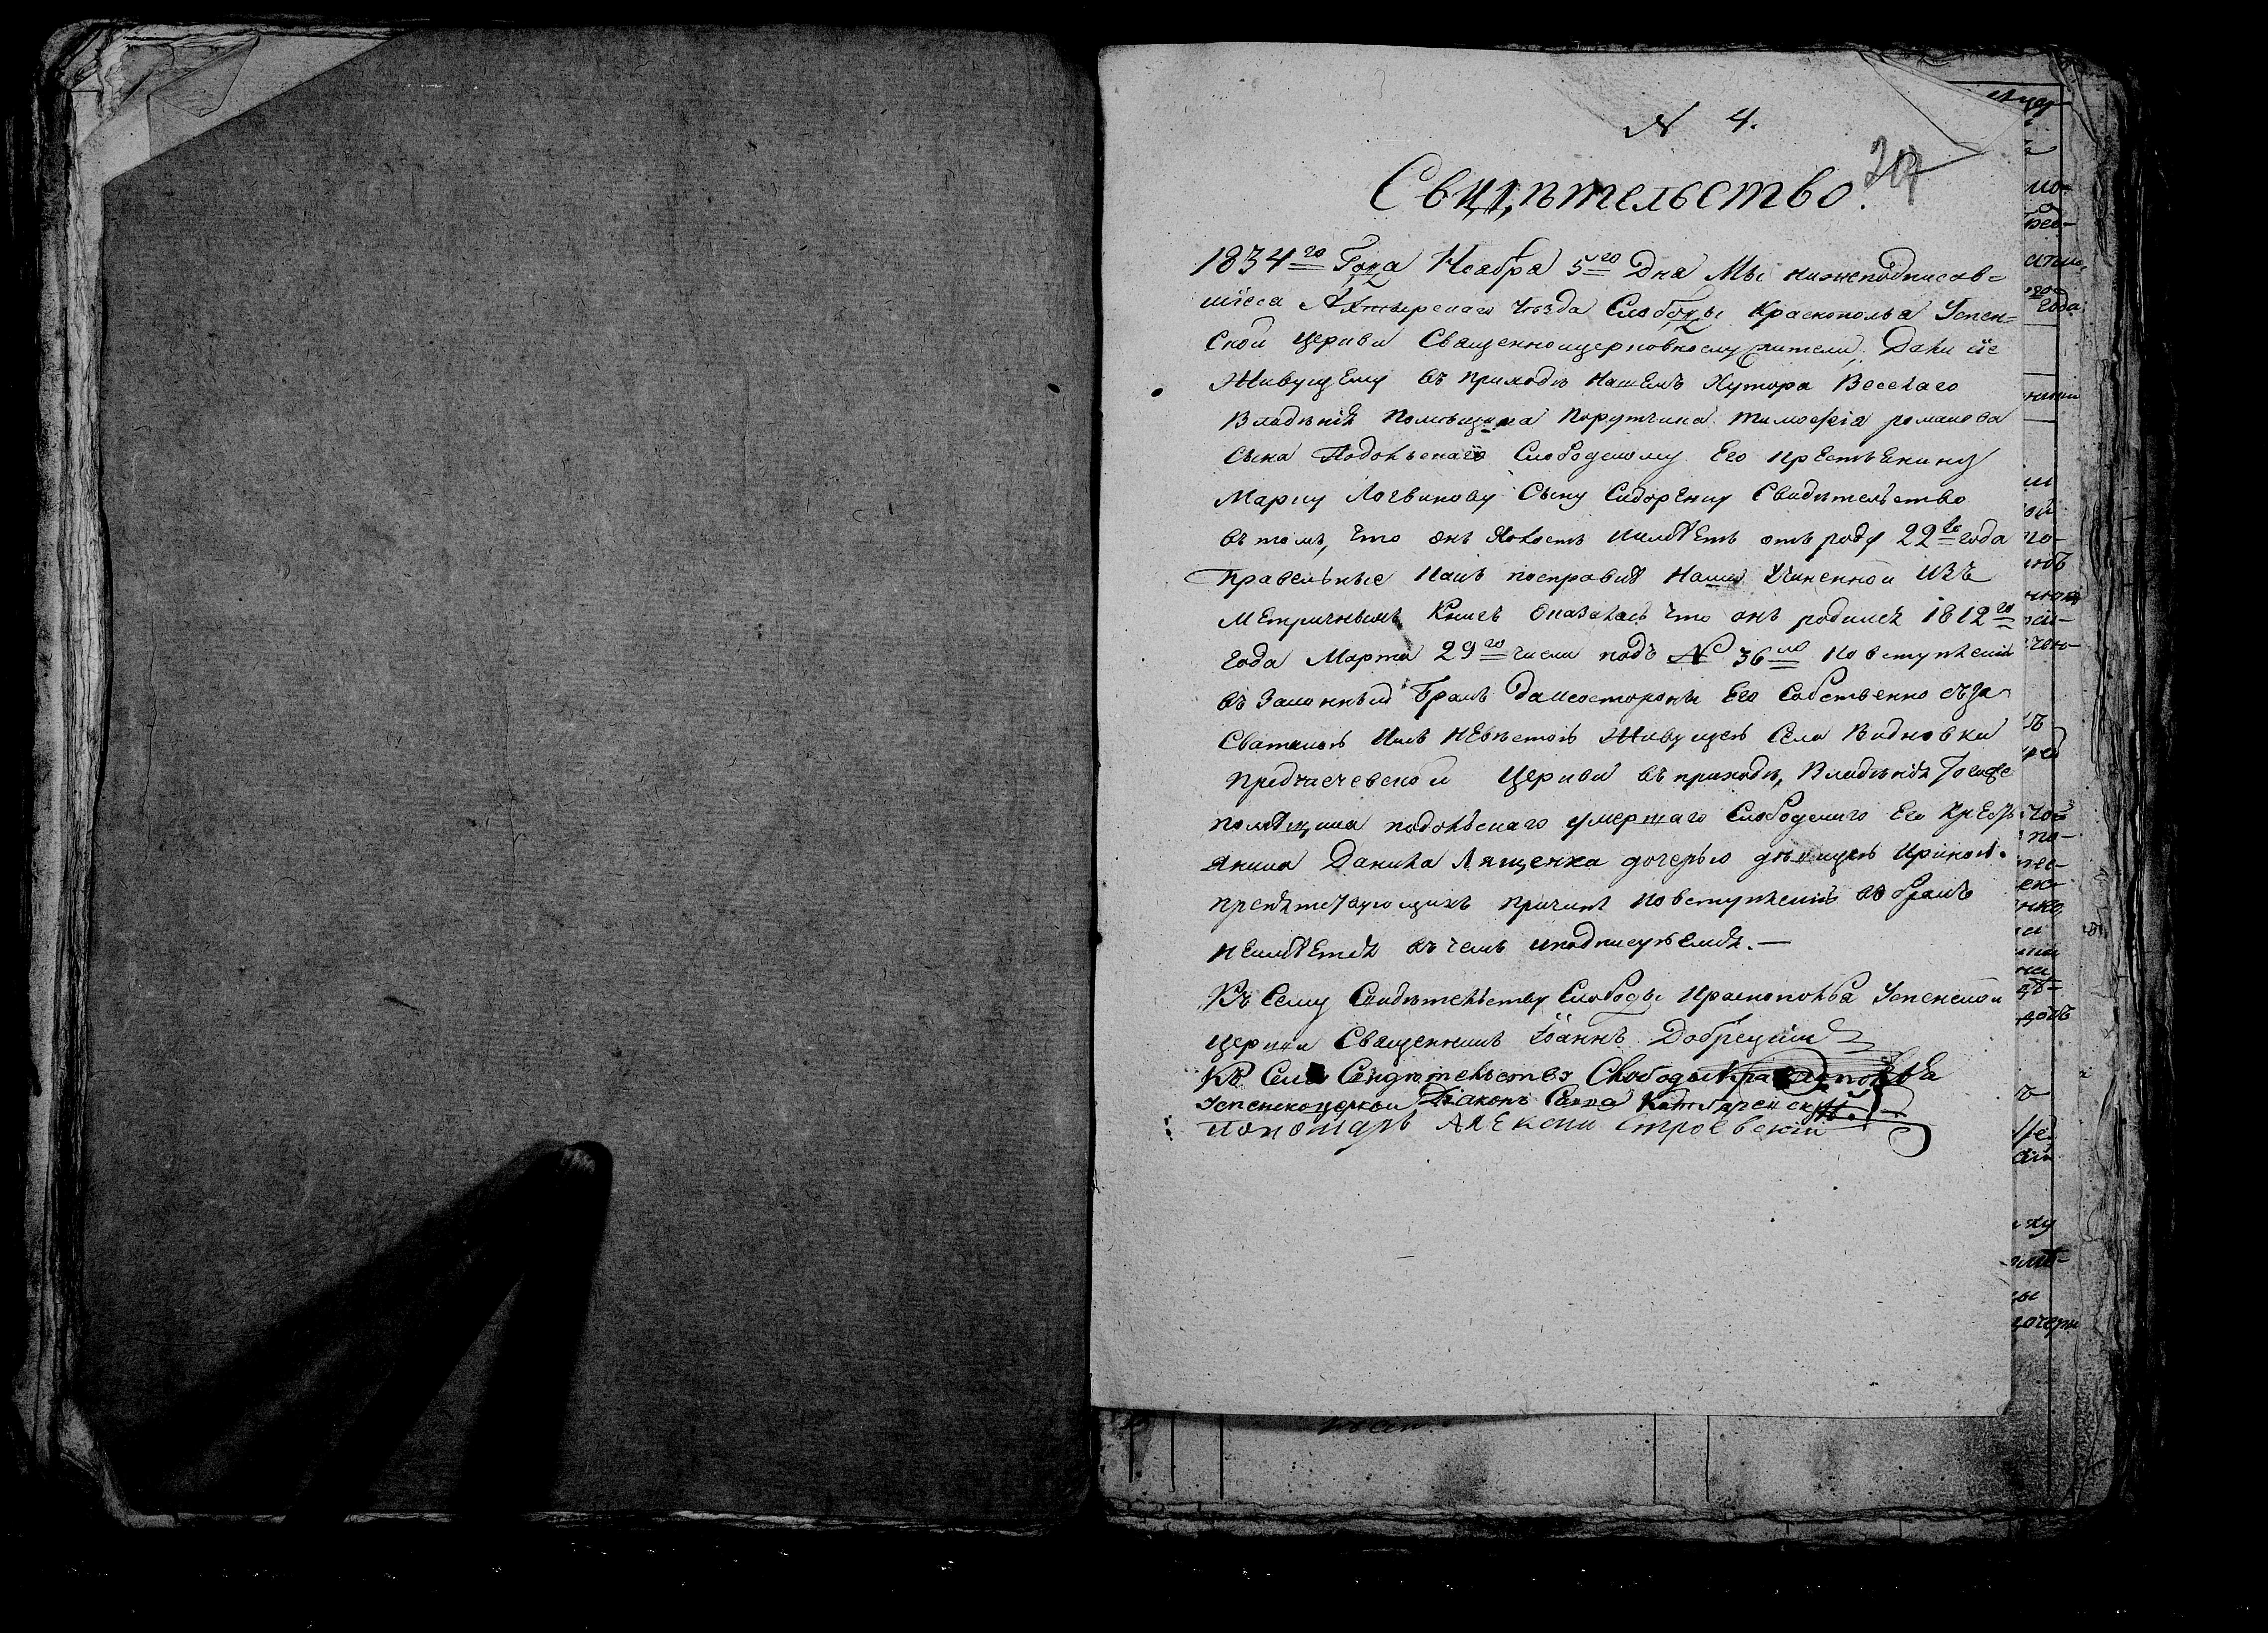 N 4.
Свидѣтельство.
1834го Года Ноабра 5го Дна Мы нижеподписав=
шіеса Ахтырскаго Уѣзда Слободы Краснополья Успен=
Ской Церкви Священноцерковнослужители, Дали сіе
Живущему въ приходѣ Нашемъ Хутора Веселаго
Владѣнія Помѣщика Порутчика Тимофѣя романова
Сына Подольскаго Слободскому Его крестьянину
Марку Логвинову Сыну Сидоренку Свидѣтельство
въ томъ, что онъ Холостъ имѣетъ отъ роду 22 года
Правельные Какъ по справкѣ Нами Учиненной Изъ
Метричныхъ Книгъ Оказалось что онъ родился 1812го
Года Марта 29го числа подъ № 36мъ Ко вступленію
въ Законный Бракъ Какъ со стороны Его Собственно съ за
Сватаною Имъ Невѣстою Живущею Села Видновки
Предтечевской Церкви въ приходѣ, Владѣнія Тогоже
помѣщика подольскаго умершаго Слободскаго Его Крестъ
янина Данила Лященка дочерью дѣвицею Ириною.
препятствующихъ причинъ Ко вступленію въ бракъ
Неимѣется въ чемъ и подписуемся. —
Къ Сему Свидѣтельству Слободы Краснополья Успенской
Церкви Священникъ Іоаннъ Добрецкій
Къ Сему Свидѣтельству Слободы Краснополья
Успенской церкви Діаконъ Савва
Пономарь Алексій Строевскій